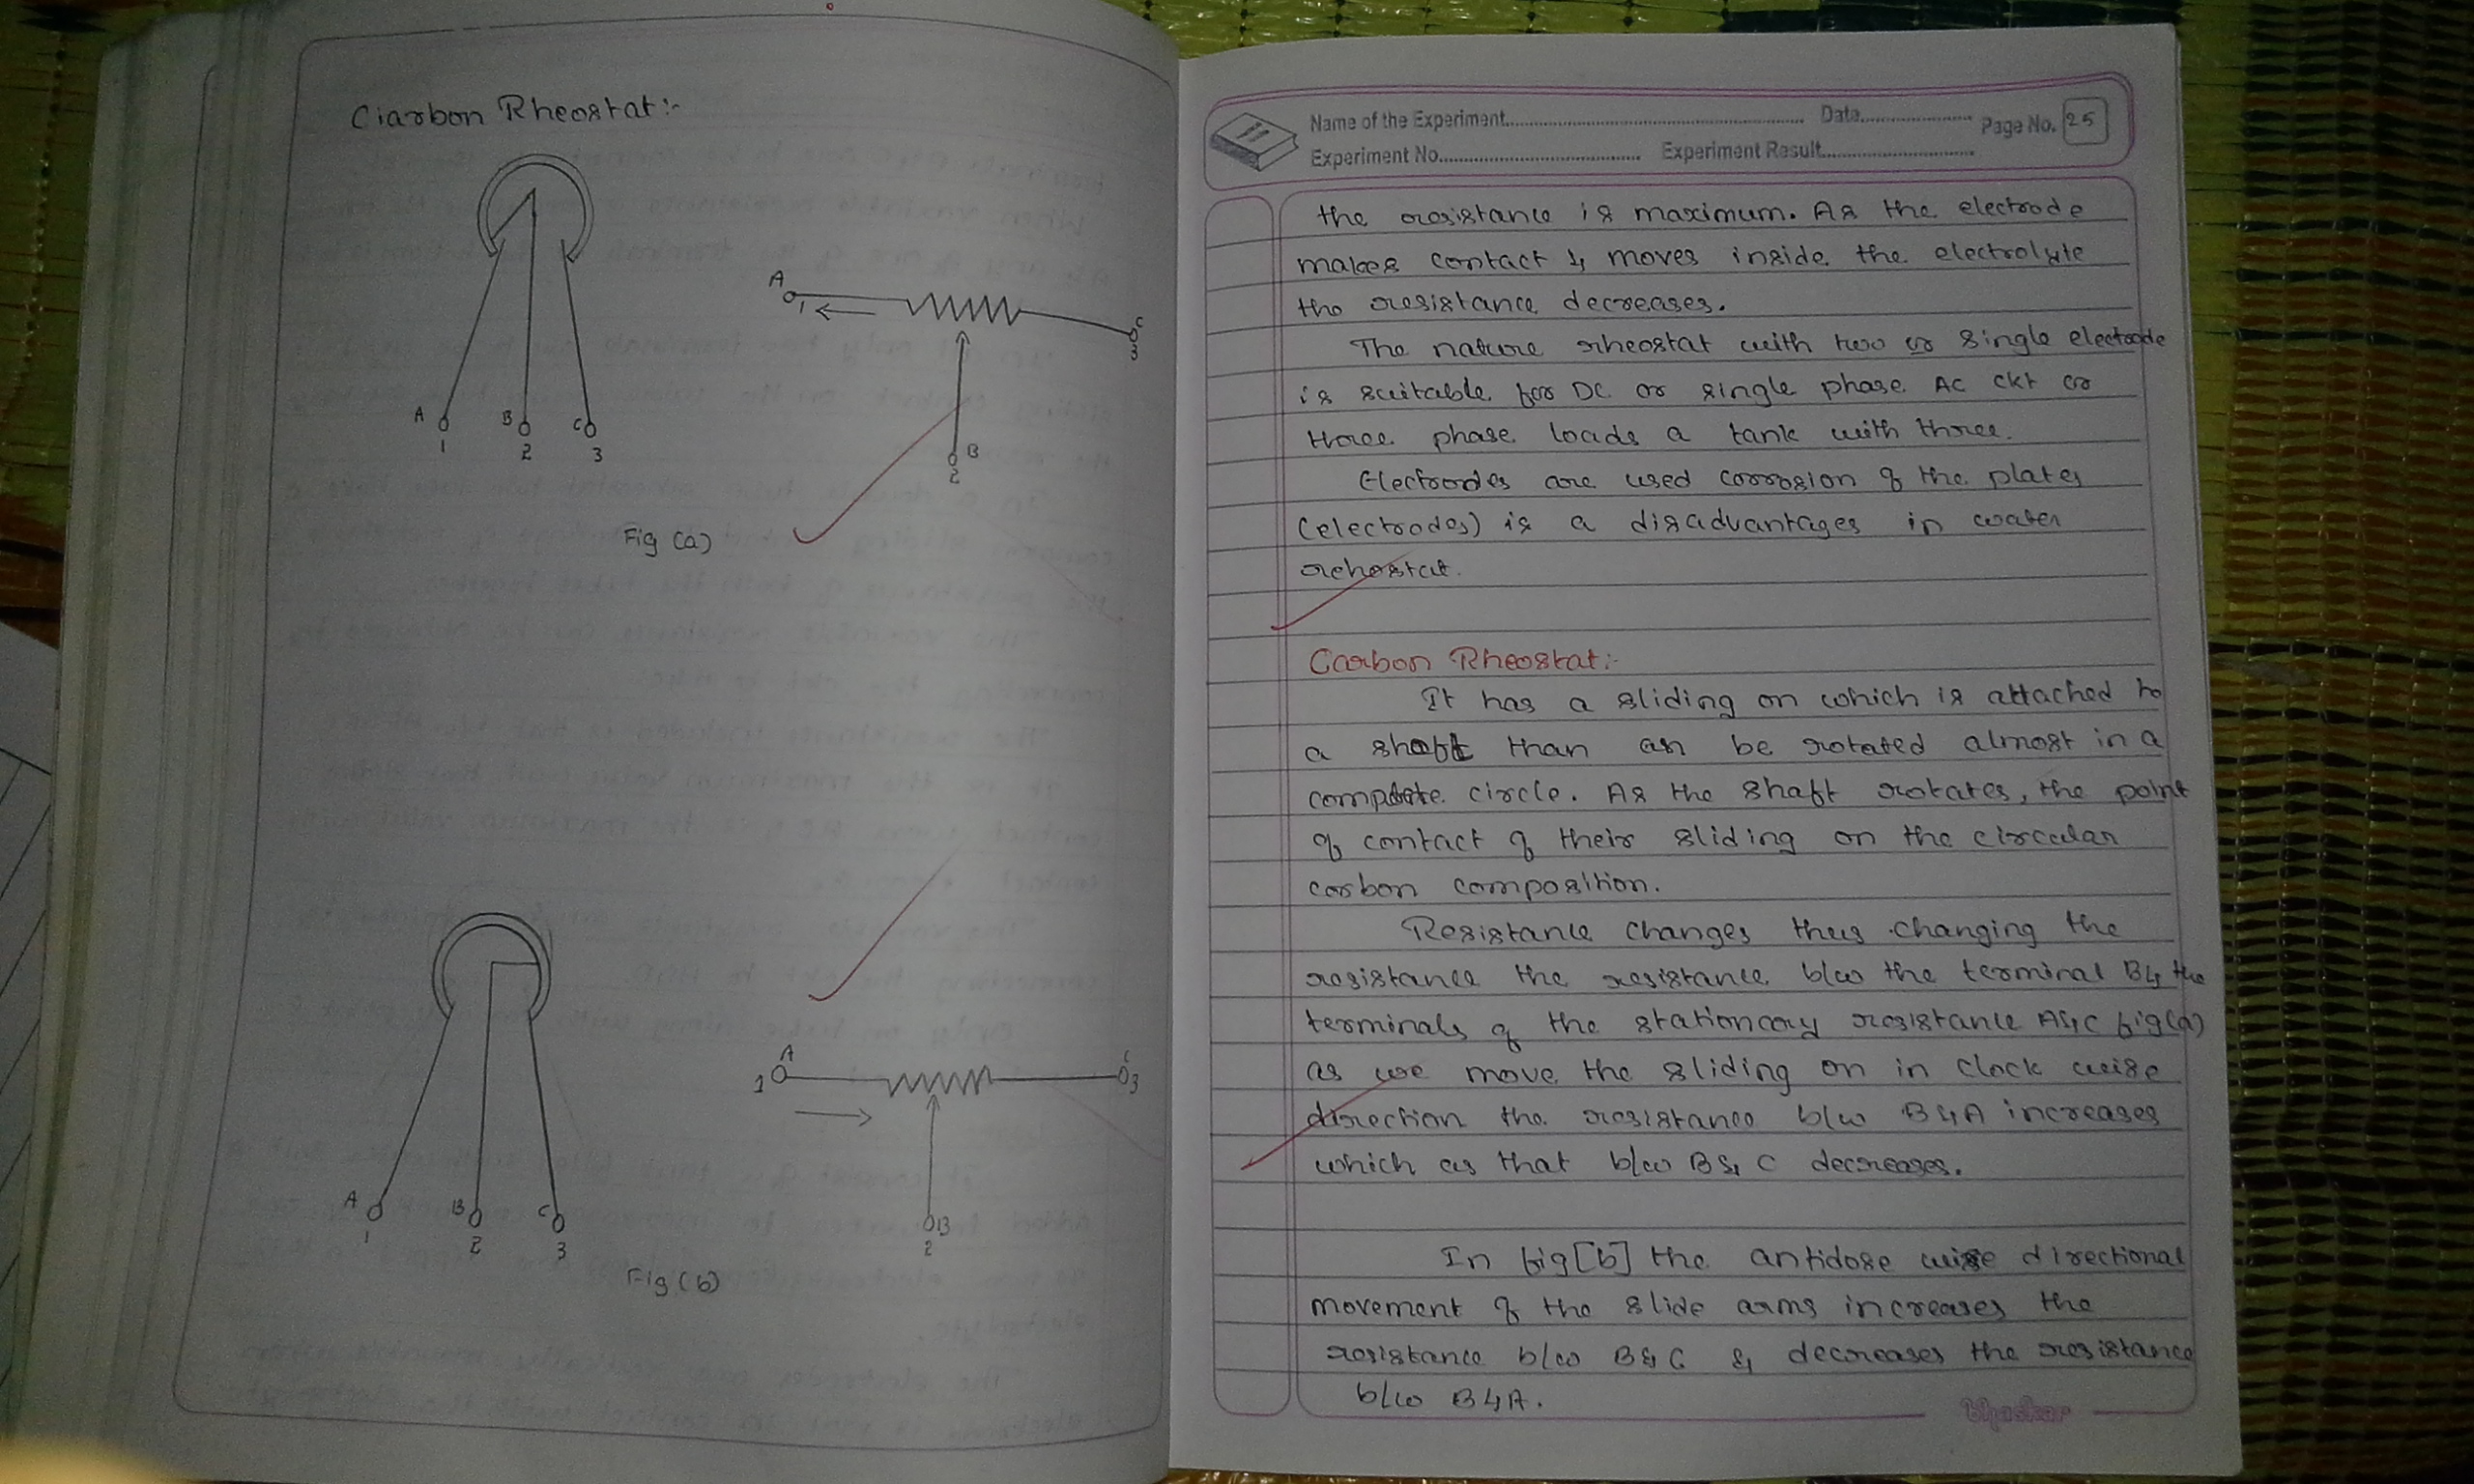 Ciarbon Rheostat:-
A
1
B
2
C
3
A
1
C
3
B
2
Fig (a)
A
1
B
2
C
3
A
1
C
3
B
2
Fig (b)
Name of the Experiment.......... Data..........
Page No. 25
Experiment No.......... Experiment Result..........
the resistance is maximum. As the electrode
makes contact & moves inside the electrolyte
the resistance decreases.
The nature rheostat with two or single electrode
is suitable for DC or single phase AC ckt or
three phase loads a tank with three.
Electrodes are used corrosion of the plates
(electrodes) is a disadvantages in water
rehostat.
Carbon Rheostat:-
It has a sliding on which is attached to
a shaft than an be rotated almost in a
complete circle. As the shaft rotates, the point
of contact of their sliding on the circular
carbon composition.
Resistance changes thus changing the
resistance the resistance b/w the terminal B & the
terminals of the stationary resistance A & C fig(a)
as we move the sliding on in clock wise
direction the resistance b/w B & A increases
which as that b/w B & C decreases.
In fig[b] the antidose wise directional
movement of the slide arms increases the
resistance b/w B & C & decreases the resistance
b/w B & A.
Bhaskar